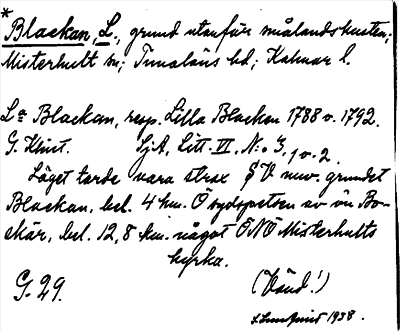 *Blackan, L., grund utanför smålandskusten;
Misterhult sn; Tunaläns hd; Kalmar l.
La Blackan, resp. Lilla Blackan 1788 o. 1792.
G. Klint. SjA, Litt. VI, No 3, 1 o. 2.
Läget torde vara strax SV nuv. grundet
Blackan, bel. 4 km. O sydspetsen av ön Bo-
skär, bel. 12,8 km. något ONO Misterhults
kyrka.
G. 29. (Vänd!)
1938.